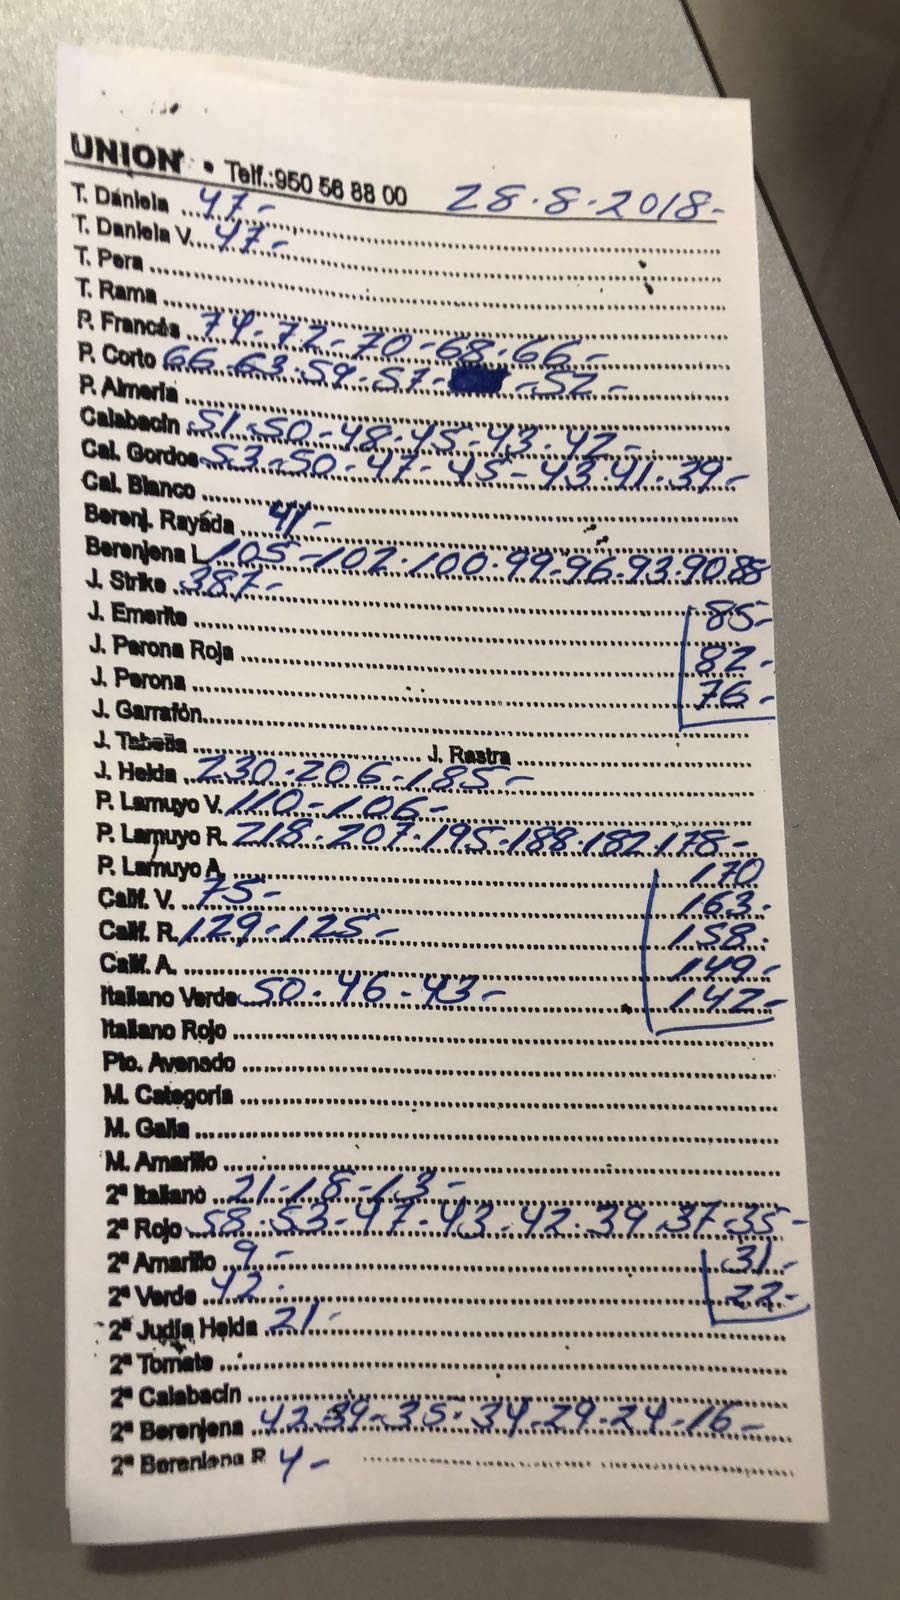 UNION • Telf.:950 56 88 00 28-8-2018-
T. Daniela 47-
T. Daniela V. 47-
T. Pera
T. Rama
P. Francés 74-72-70-68-66-
P. Corto 66-63-59-57- -52-
P. Almería
Calabacín 51-50-48-45-43-42-
Cal. Gordos 53-50-47-45-43-41-39-
Cal. Blanco
Berenj. Rayada 41-
Berenjena L. 105-102-100-99-96-93-90 88
J. Strike 387- 85-
J. Emerite 82-
J. Perona Roja 76-
J. Perona
J. Garrafón
J. Tabella J. Rastra
J. Helda 230-206-185-
P. Lamuyo V. 110-106-
P. Lamuyo R. 218-207-195-188-182-178-
P. Lamuyo A. 170
Calif. V. 75- 163-
Calif. R. 129-125- 158-
Calif. A. 149-
Italiano Verde 50-46-43- 142-
Italiano Rojo
Pto. Avenado
M. Categoría
M. Galia
M. Amarillo
2ª Italiano 21-18-13-
2ª Rojo 58-53-47-43-42-39-37-35-
2ª Amarillo 9- 31-
2ª Verde 42- 22-
2ª Judía Helda 21-
2ª Tomate
2ª Calabacín
2ª Berenjena 42-39-35-34-29-24-16-
2ª Berenjena R 4-